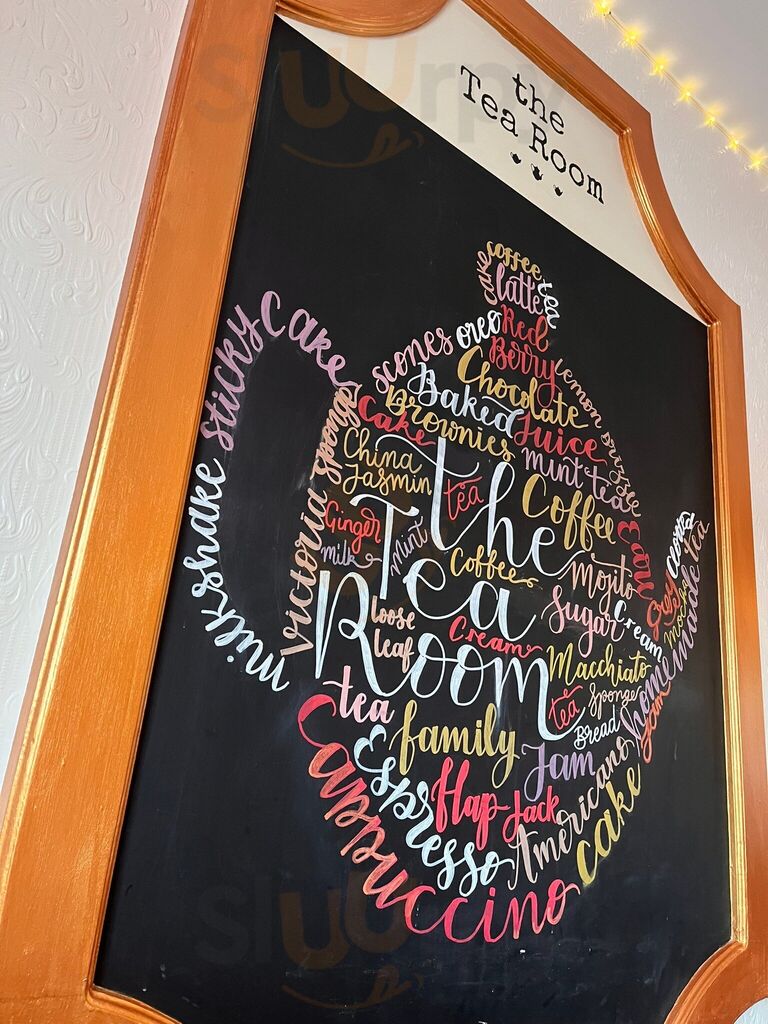 the
Tea Room
coffee
cake
tea
latte
scones
oreo
Red
Berry
lemon
Chocolate
Baked
Brownies
Juice
Cake
mint tea
sticky Cake
milkshake
victoria sponge
China
Jasmin
tea
Coffee
the
Tea
Room
Ginger
milk
Mint
Coffee
Mojito
Earl
Grey
loose
leaf
Cream
Sugar
Cream
Macchiato
home made tea
tea
Sponge
Bread
Jam
tea
family
Jam
Espresso
Flap Jack
Americano
cake
Cappuccino
slurpy
slurpy